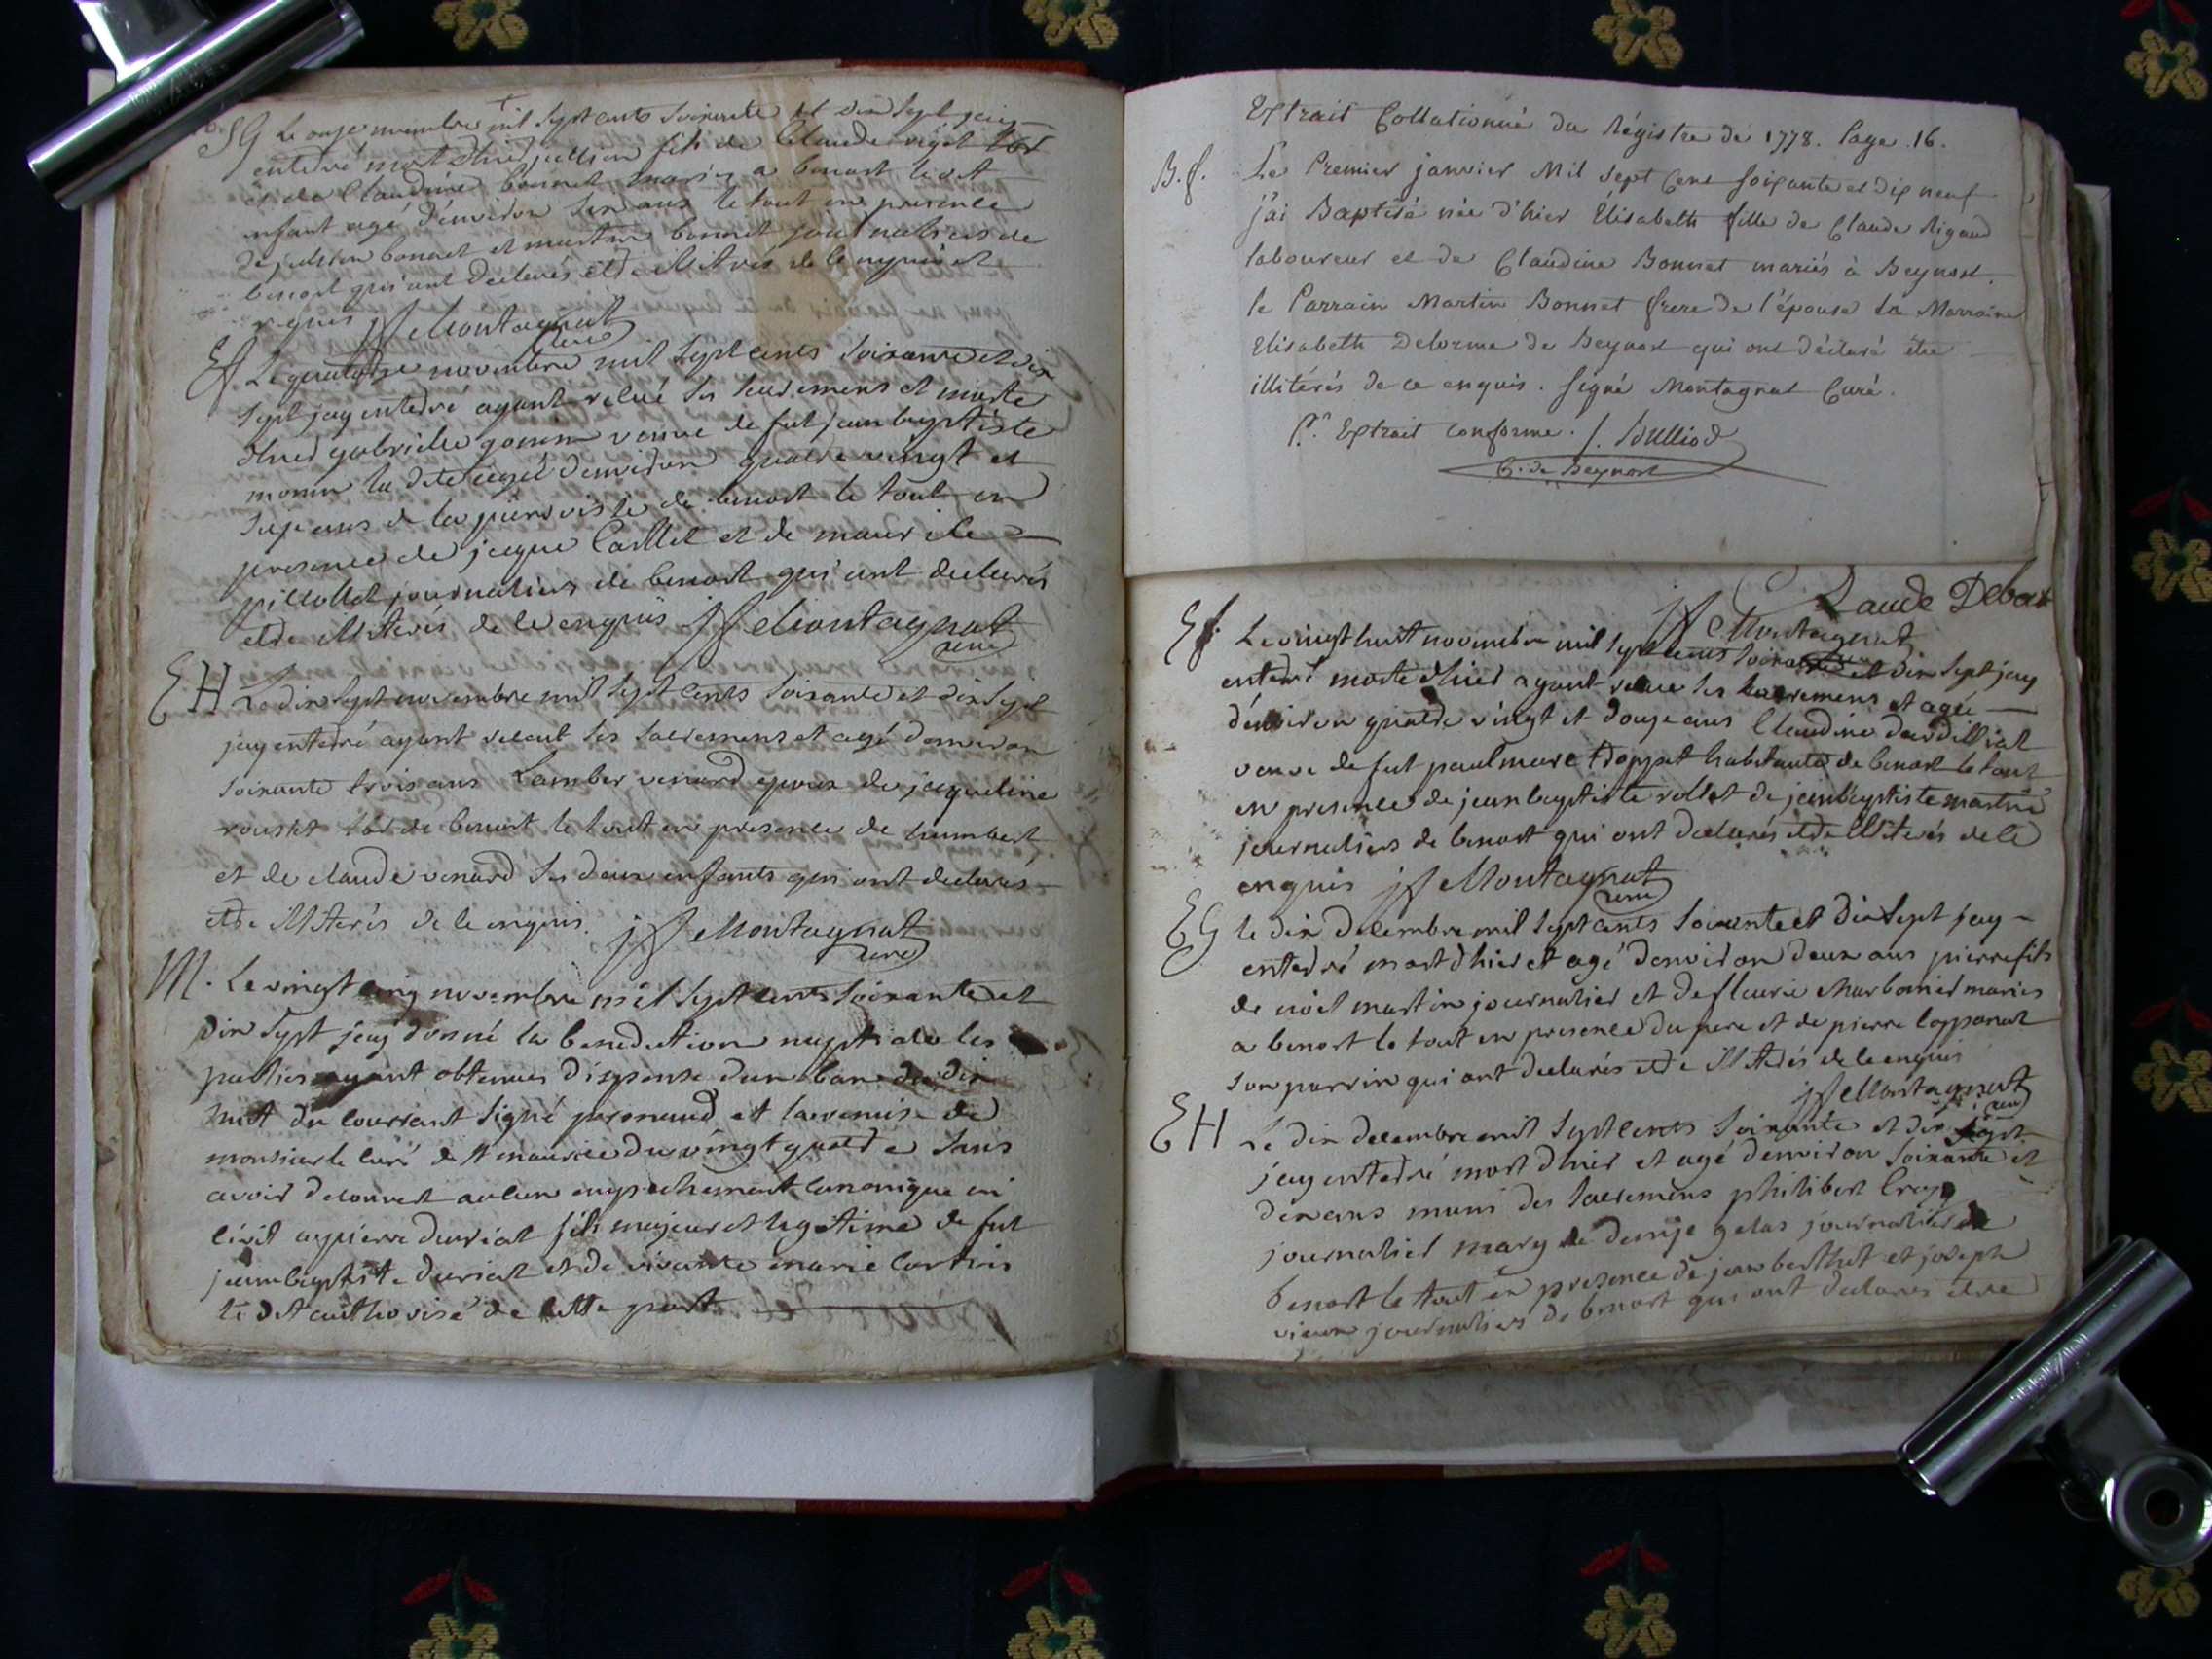 SG Le onze novembre mil sept cents soixante et dix sept jay
enterré mort d'hier fils de Claude
et de Claudine bonnet mariés a benost le dit
enfant agé d'environ six ans le tout en presence
de bonnet et martin bonnet journaliers de
benost qui ont declarés etre illiterés de ce enquis et
requis Montagnat
curé
Ef. Le quatorze novembre mil sept cents soixante et dix
sept jay enterré ayant recue ses sacremens et morte
dhier gabrielle veuve de fut jean baptiste
monin la dite agée denviron quatre vingt et
sept ans de la parroisse de benost le tout en
presence de jaque Caillet et de maurice
journaliers de benost qui ont declarés
etre illiterés de ce enquis Montagnat
curé
EH Le dix sept novembre mil sept cents soixante et dix sept
jay enterré ayant receut ses sacremens et agé denviron
soixante trois ans Lamber venard epoux de jaqueline
rousset de benost le tout en presence de humbert
et de claude venard ses deux enfants qui ont declarés
etre illiterés de ce enquis. Montagnat
curé
M. Le vingt cinq novembre mil sept cents soixante et
dix sept jay donné la benediction nuptiale les
parties ayant obtenues dispense dun ban du dix
huit du courrant signé et la remise de
monsieur le curé de st maurice du vingt quatre sans
avoir decouvert aucun empechement canonique ni
civil a pierre duriat fils majeur et legetime de fut
jean baptiste duriat et de vivante marie
le dit authorisé de cette part
Extrait Collationné du Régistre de 1778. Page 16.
B.f. Le Premier janvier Mil Sept Cent Soixante et dix neuf
j'ai Baptisé née d'hier Elisabeth fille de Claude Rigaud
laboureur et de Claudine Bonnet mariés à Beynost.
le Parrain Martin Bonnet frere de l'épouse la Marraine
Elisabeth Delorme de Beynost qui ont déclaré être
illitérés de ce enquis. signé Montagnat Curé.
Pr. Extrait conforme. J. Bulliod
C. de Beynost
Claude Debox
Montagnat
Ef. Le vingt huit novembre mil sept cents soixante et dix sept jay
enterré morte dhier ayant recue ses sacremens et agée
d'environ quatre vingt et douze ans Claudine dardilliat
veuve de fut paul marc troppet habitante de benost le tout
en presence de jean baptiste rollet de jean baptiste martin
journaliers de benost qui ont declarés etre illiterés de ce
enquis Montagnat
curé
EG le dix decembre mil sept cents soixante et dix sept jay
enterré mort dhier et agé denviron deux ans pierre fils
de noël martin journalier et de fleurie charbonier mariés
a benost le tout en presence du pere et de pierre
son parrin qui ont declarés etre illiterés de ce enquis
Montagnat
curé
EH Le dix decembre mil sept cents soixante et dix sept
jay enterré mort dhier et agé denviron soixante et
dix ans muni des sacremens philibert
journalier mary de denize gelas journalier de
benost le tout en presence de jean berthet et joseph
vieux journaliers de benost qui ont declarés etre